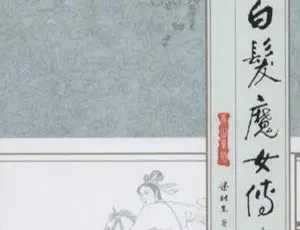 白髮魔女傳
梁羽生 著